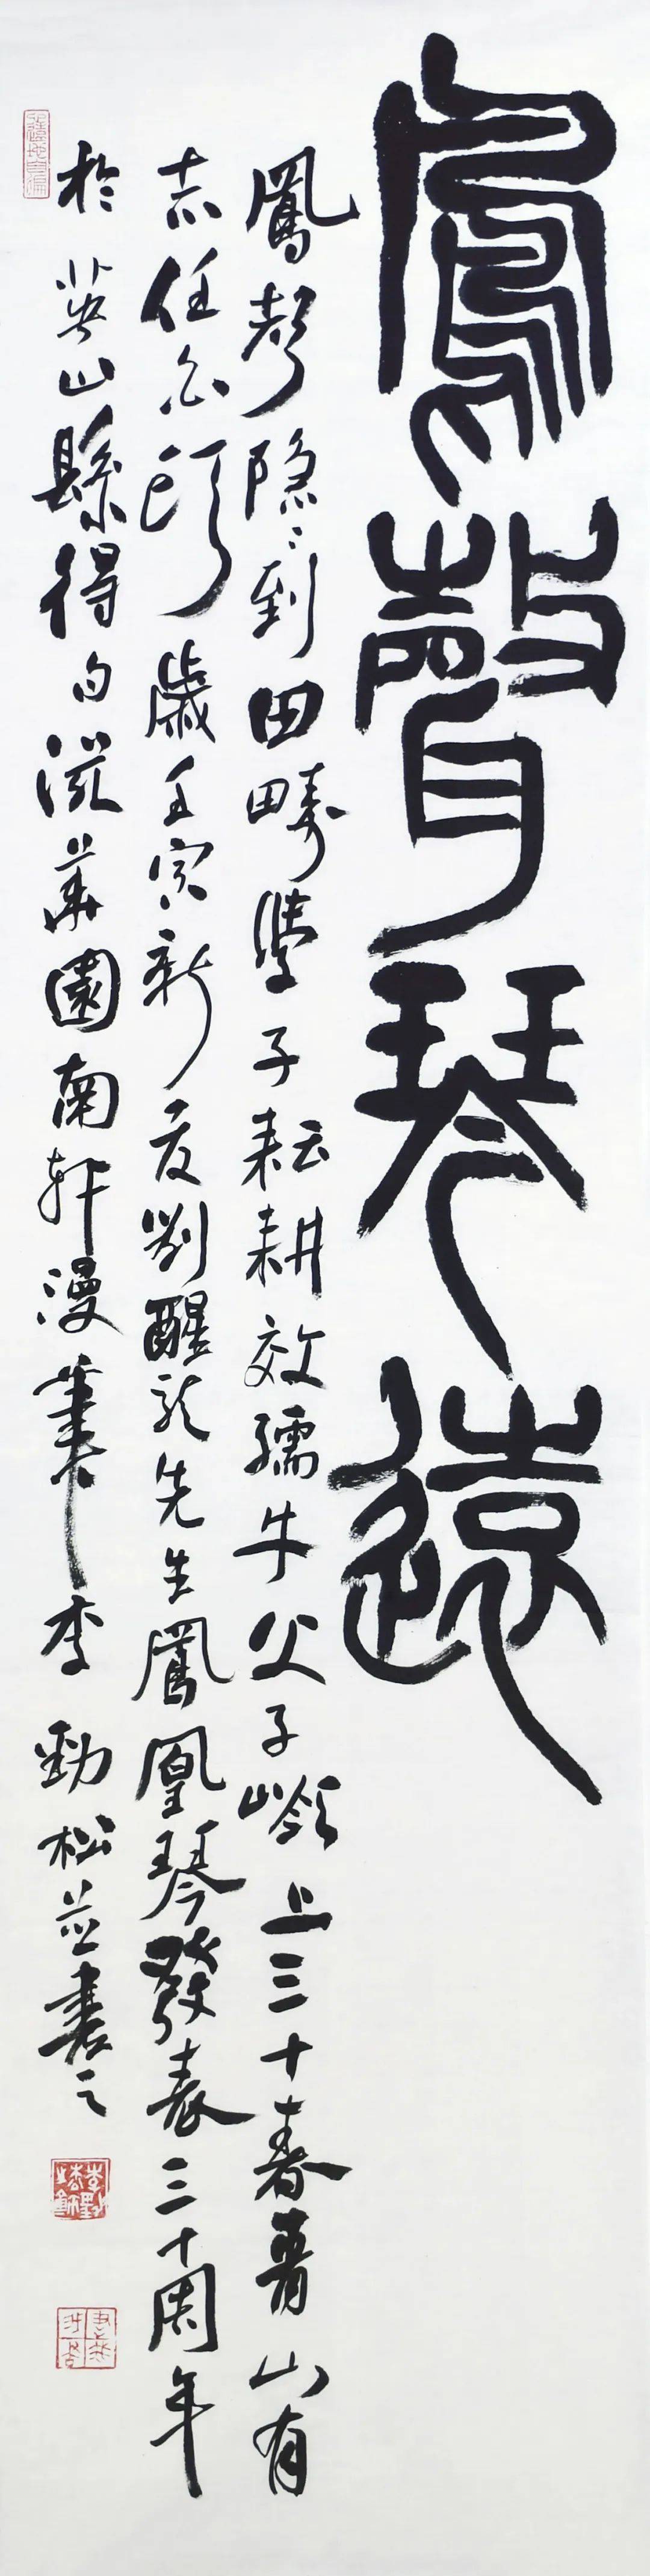 鳳聲琴遠
鳳聲隐々到田疇學子耘耕效孺牛父子嶺上三十春青山有
志任白頭歲壬寅新夏劉醒龍先生鳳凰琴發表三十周年
於英山縣得句華園南軒漫筆李勁松並書之